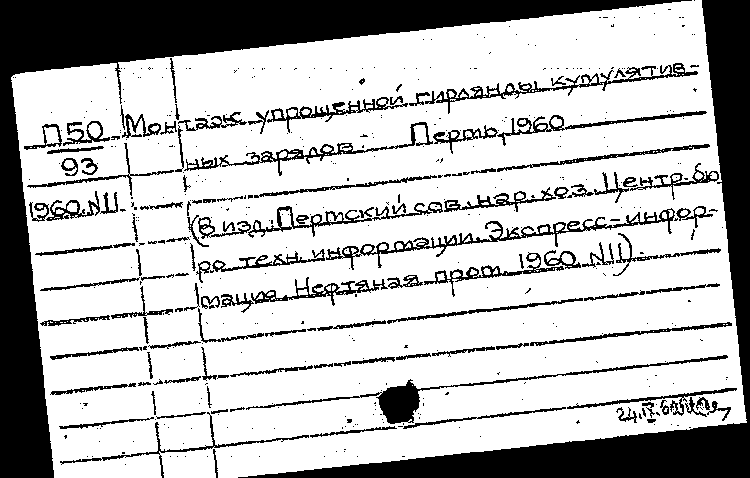 П50
93
1960.N11
Монтаж упрощенной гирлянды кумулятив-
ных зарядов. Пермь, 1960
(В изд.: Пермский сов. нар. хоз. Центр. бю
ро техн. информации. Экспресс-инфор-
мация. Нефтяная пром. 1960. N11).
24.IX.